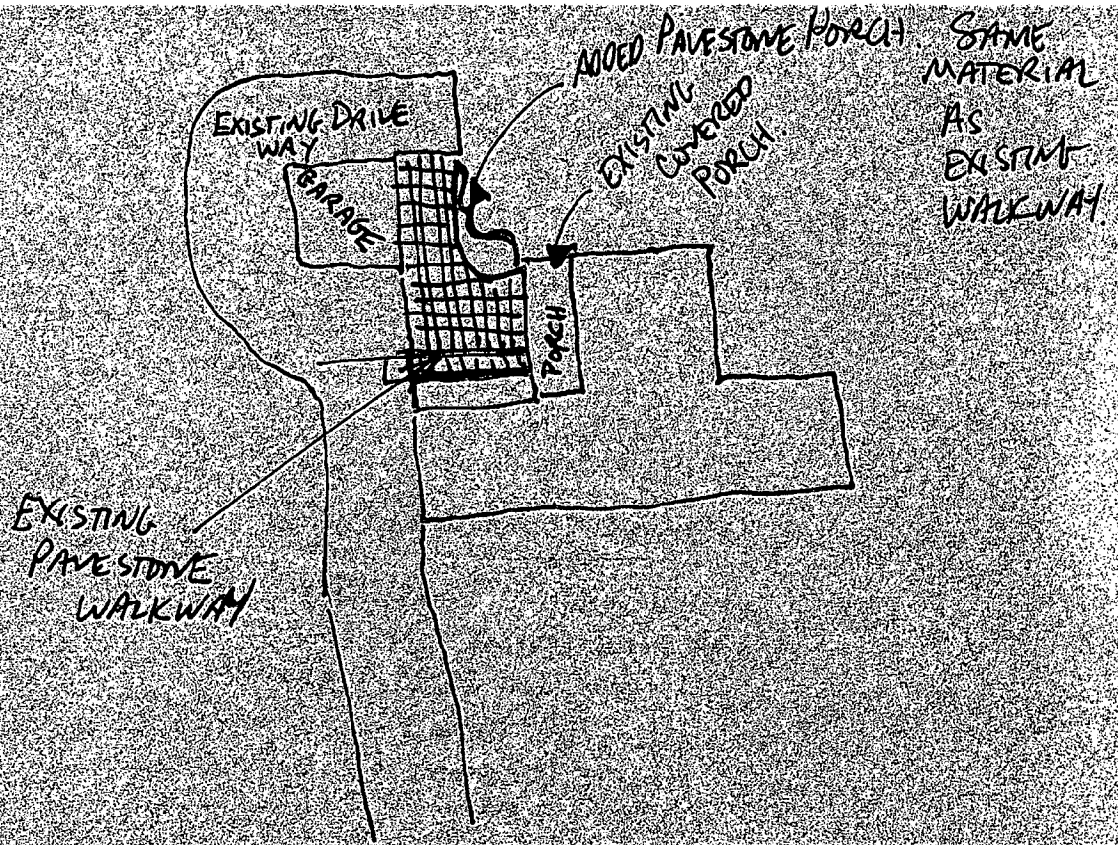 ADDED PAVESTONE PORCH. SAME
MATERIAL
AS
EXISTING
WALKWAY
EXISTING
COVERED
PORCH.
EXISTING DRIVE
WAY
GARAGE
PORCH
EXISTING
PAVESTONE
WALKWAY